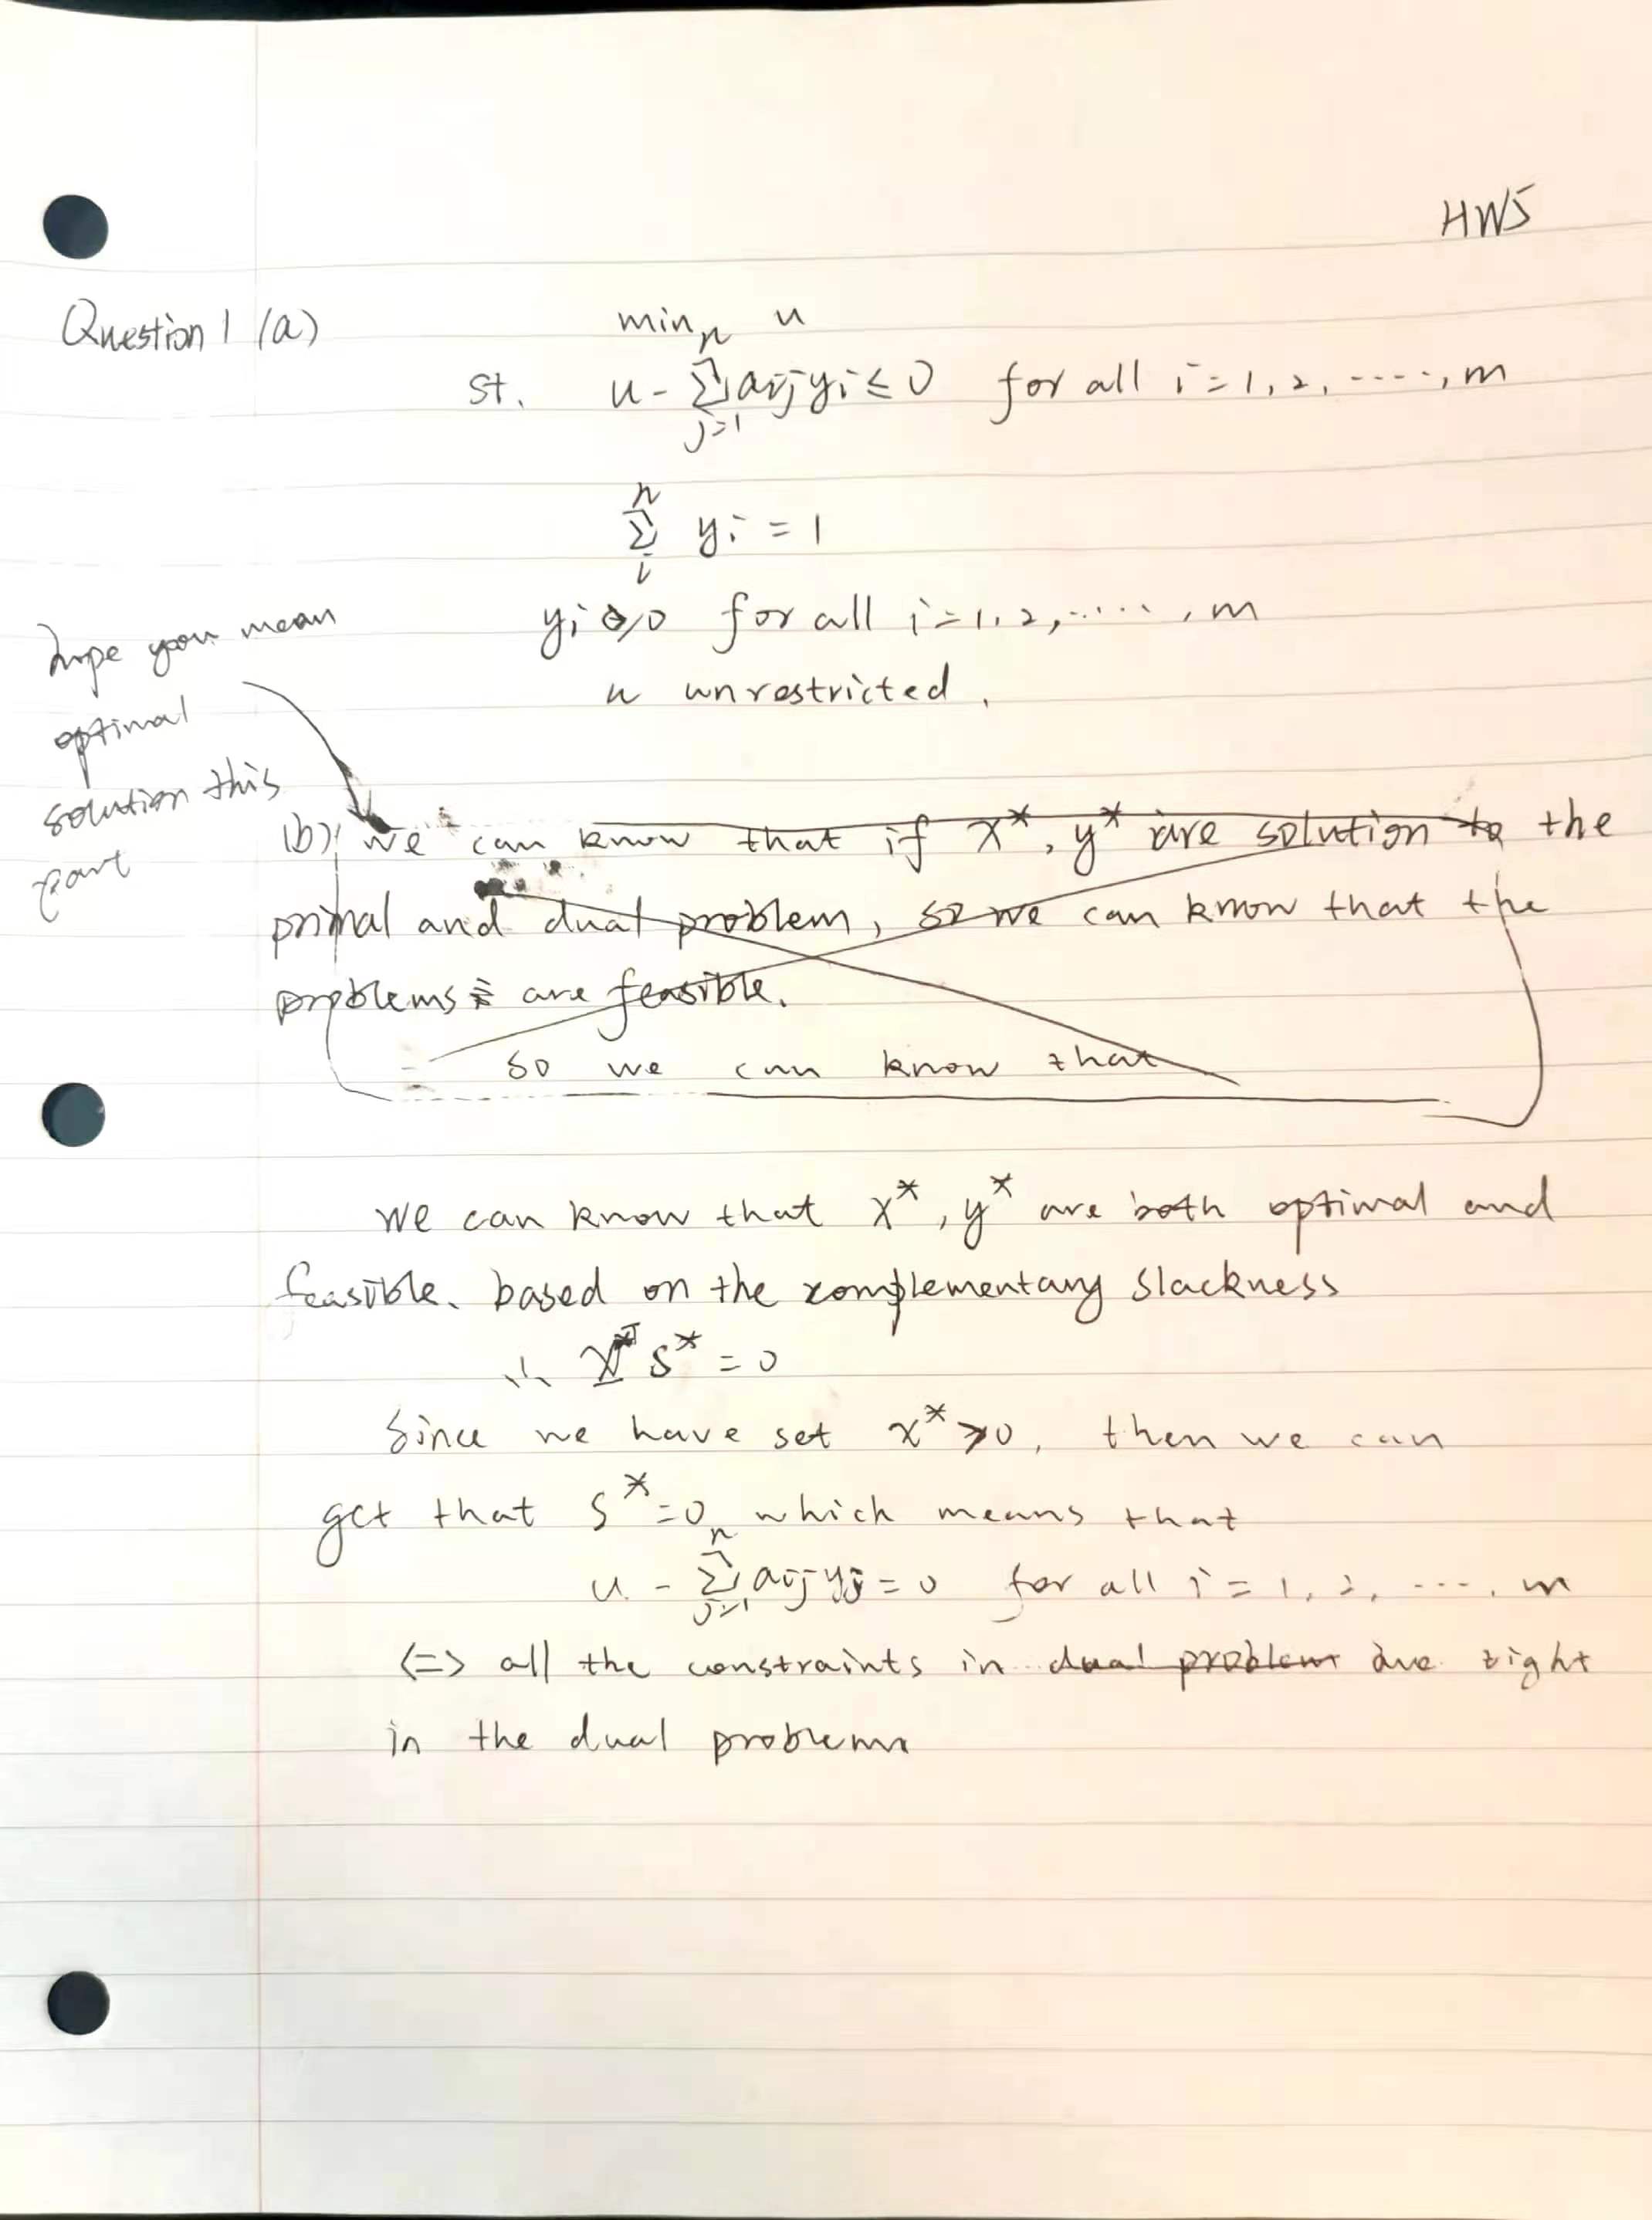 HW5
Question 1 (a)
min u
st. u - ∑_{j=1}^{n} aij yi ≤ 0 for all i = 1, 2, ....., m
∑_{i}^{n} yi = 1
yi ≥ 0 for all i = 1, 2, ....., m
u unrestricted.
hope you mean
optimal
solution this
part
(b) we can know that if x*, y* are solution to the
primal and dual problem, so we can know that the
problems are feasible.
so we can know that
we can know that x*, y* are both optimal and
feasible. based on the complementary slackness
∴ X*ᵀ s* = 0
Since we have set x* > 0, then we can
get that s* = 0 which means that
u - ∑_{j=1}^{n} aij yj = 0 for all i = 1, 2, ...., m
<=> all the constraints in dual problem are tight
in the dual problem